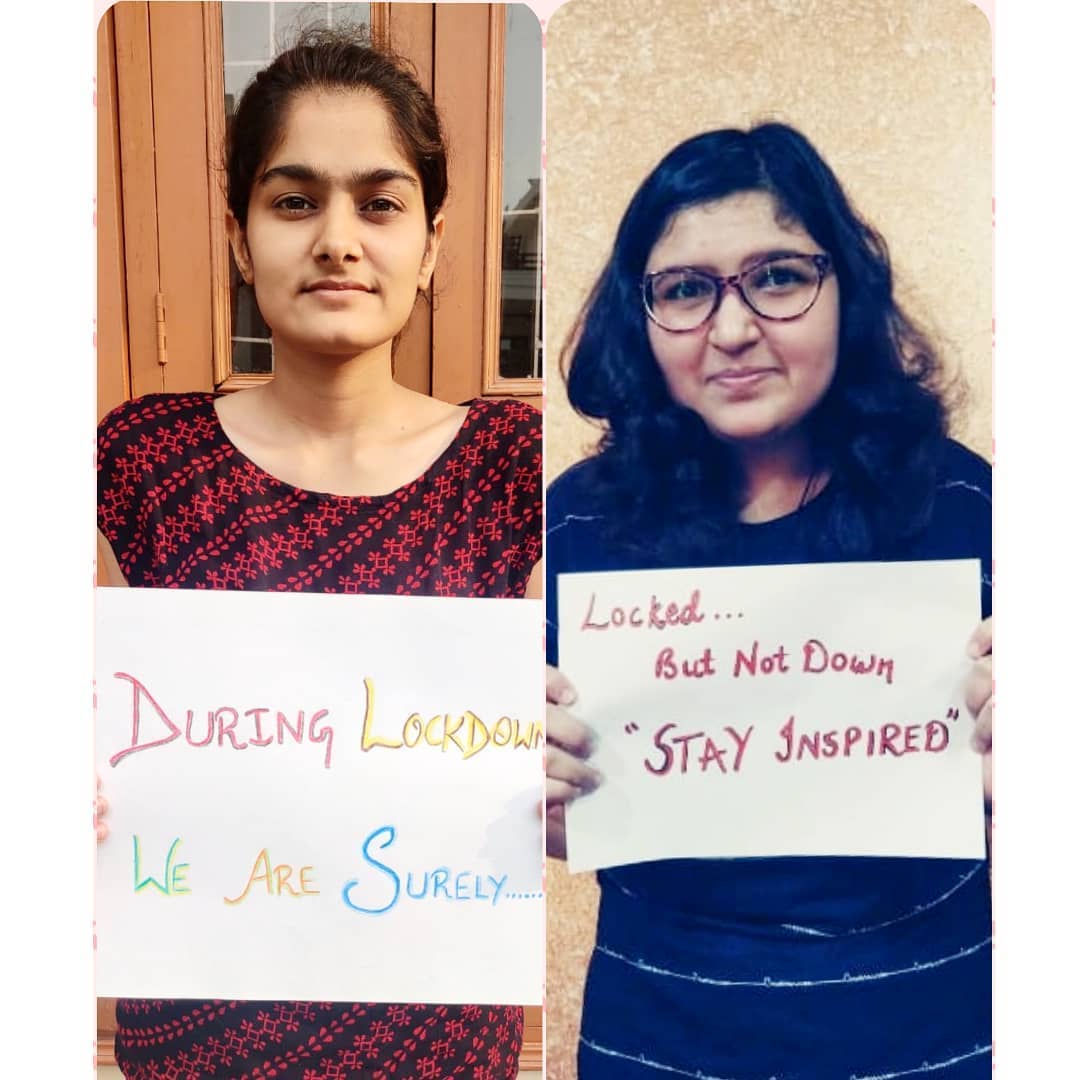 DURING LOCKDOWN
WE ARE SURELY......
Locked...
But Not Down
"STAY INSPIRED"